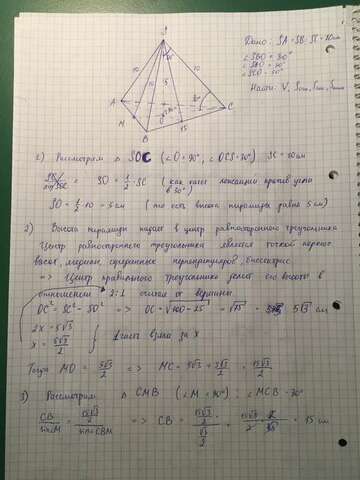 S
10
10
5
30°
A
C
M
B
O
15
Дано: SA=SB=SC=10см
∠SBO=30°
∠SAO=30°
∠SCO=30°
Найти: V,
1) Рассмотрим △ SOC (∠O=90°, ∠OCS=30°) SC=10см
SO = 1/2 · SC (как катет лежащий против угла
в 30°)
SO = 1/2 · 10 = 5 см (то есть высота пирамиды равна 5 см)
2) Высота пирамиды падает в центр равностороннего треугольника
Центр равностороннего треугольника является точкой перес.
высот, медиан, серединных перпендикуляров, биссектрис.
=> Центр правильного треугольника делит его высоты в
отношении 2:1 считая от вершины
OC² = SC² - SO² => OC = √100-25 = √75 = 5√3 см
2x = 5√3
x = 5√3/2
1 часть взяла за x
Тогда MO = 5√3/2 => MC = 5√3 + 5√3/2 = 15√3/2
3) Рассмотрим △ CMB (∠M=90°); ∠MCB=30°
CB/sin M = 15√3/2 / sin CBM => CB = 15√3/2 / √3/2 = 15√3/2 · 2/√3 = 15 см